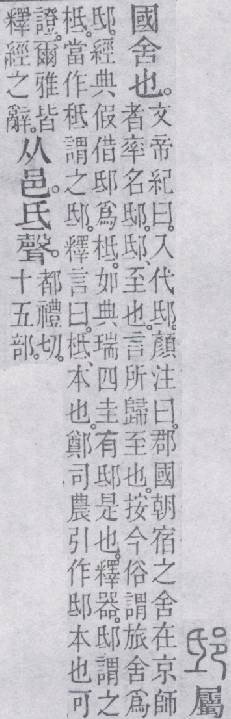 邸屬
國舍也。
文帝紀曰。入代邸。顏注曰。郡國朝宿之舍在京師
者率名邸。邸、至也。言所歸至也。按今俗謂旅舍爲
邸。經典假借邸爲柢。如典瑞四圭有邸是也。釋器。邸謂之
柢。當作柢謂之邸。釋言曰。柢、本也。鄭司農引作邸本也可
證。爾雅皆
釋經之辭。
从邑。氐聲。
都禮切。
十五部。